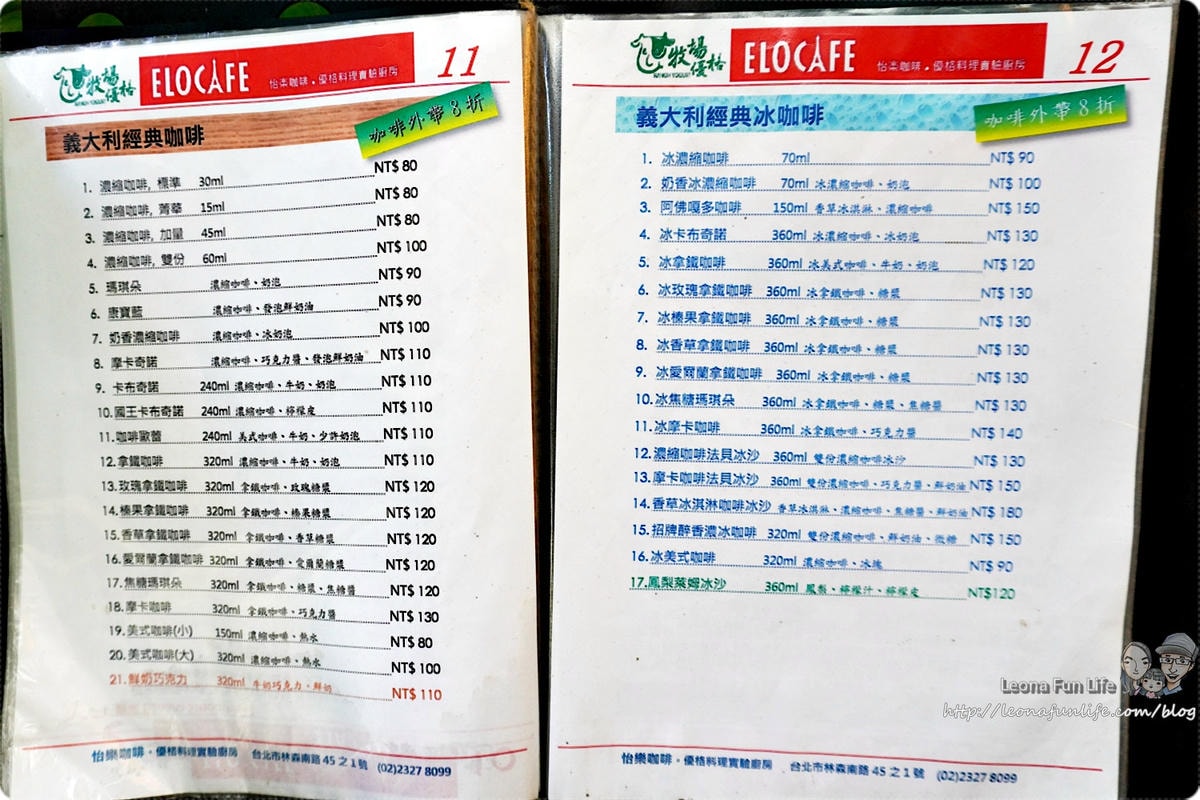 牧場優格 RANCH YOGURT
ELOCAFE 怡樂咖啡。優格料理實驗廚房
11
義大利經典咖啡
咖啡外帶8折
1. 濃縮咖啡, 標準 30ml NT$ 80
2. 濃縮咖啡, 菁華 15ml NT$ 80
3. 濃縮咖啡, 加量 45ml NT$ 80
4. 濃縮咖啡, 雙份 60ml NT$ 100
5. 瑪琪朵 濃縮咖啡、奶泡 NT$ 90
6. 康寶藍 濃縮咖啡、發泡鮮奶油 NT$ 90
7. 奶香濃縮咖啡 濃縮咖啡、冰奶泡 NT$ 100
8. 摩卡奇諾 濃縮咖啡、巧克力醬、發泡鮮奶油 NT$ 110
9. 卡布奇諾 240ml 濃縮咖啡、牛奶、奶泡 NT$ 110
10. 國王卡布奇諾 240ml 濃縮咖啡、檸檬皮 NT$ 110
11. 咖啡歐蕾 240ml 美式咖啡、牛奶、少許奶泡 NT$ 110
12. 拿鐵咖啡 320ml 濃縮咖啡、牛奶、奶泡 NT$ 110
13. 玫瑰拿鐵咖啡 320ml 拿鐵咖啡、玫瑰糖漿 NT$ 120
14. 榛果拿鐵咖啡 320ml 拿鐵咖啡、榛果糖漿 NT$ 120
15. 香草拿鐵咖啡 320ml 拿鐵咖啡、香草糖漿 NT$ 120
16. 愛爾蘭拿鐵咖啡 320ml 拿鐵咖啡、愛爾蘭糖漿 NT$ 120
17. 焦糖瑪琪朵 320ml 拿鐵咖啡、糖漿、焦糖醬 NT$ 120
18. 摩卡咖啡 320ml 拿鐵咖啡、巧克力醬 NT$ 130
19. 美式咖啡(小) 150ml 濃縮咖啡、熱水 NT$ 80
20. 美式咖啡(大) 320ml 濃縮咖啡、熱水 NT$ 100
21. 鮮奶巧克力 320ml 牛奶巧克力、鮮奶 NT$ 110
怡樂咖啡。優格料理實驗廚房 台北市林森南路 45 之 1 號 (02)2327 8099
牧場優格 RANCH YOGURT
ELOCAFE 怡樂咖啡。優格料理實驗廚房
12
義大利經典冰咖啡
咖啡外帶8折
1. 冰濃縮咖啡 70ml NT$ 90
2. 奶香冰濃縮咖啡 70ml 冰濃縮咖啡、奶泡 NT$ 100
3. 阿佛嘎多咖啡 150ml 香草冰淇淋、濃縮咖啡 NT$ 150
4. 冰卡布奇諾 360ml 冰濃縮咖啡、冰奶泡 NT$ 130
5. 冰拿鐵咖啡 360ml 冰美式咖啡、牛奶、奶泡 NT$ 120
6. 冰玫瑰拿鐵咖啡 360ml 冰拿鐵咖啡、糖漿 NT$ 130
7. 冰榛果拿鐵咖啡 360ml 冰拿鐵咖啡、糖漿 NT$ 130
8. 冰香草拿鐵咖啡 360ml 冰拿鐵咖啡、糖漿 NT$ 130
9. 冰愛爾蘭拿鐵咖啡 360ml 冰拿鐵咖啡、糖漿 NT$ 130
10. 冰焦糖瑪琪朵 360ml 冰拿鐵咖啡、糖漿、焦糖醬 NT$ 130
11. 冰摩卡咖啡 360ml 冰拿鐵咖啡、巧克力醬 NT$ 140
12. 濃縮咖啡法貝冰沙 360ml 雙份濃縮咖啡冰沙 NT$ 130
13. 摩卡咖啡法貝冰沙 360ml 雙份濃縮咖啡、巧克力醬、鮮奶油 NT$ 150
14. 香草冰淇淋咖啡冰沙 香草冰淇淋、濃縮咖啡、焦糖醬、鮮奶油 NT$ 180
15. 招牌醉香濃冰咖啡 320ml 雙份濃縮咖啡、鮮奶油、微糖 NT$ 150
16. 冰美式咖啡 320ml 濃縮咖啡、冰塊 NT$ 90
17. 鳳梨萊姆冰沙 360ml 鳳梨、檸檬汁、檸檬皮 NT$120
怡樂咖啡。優格料理實驗廚房 台北市林森南路 45 之 1 號 (02)2327 8099
Leona Fun Life
http://leonafunlife.com/blog